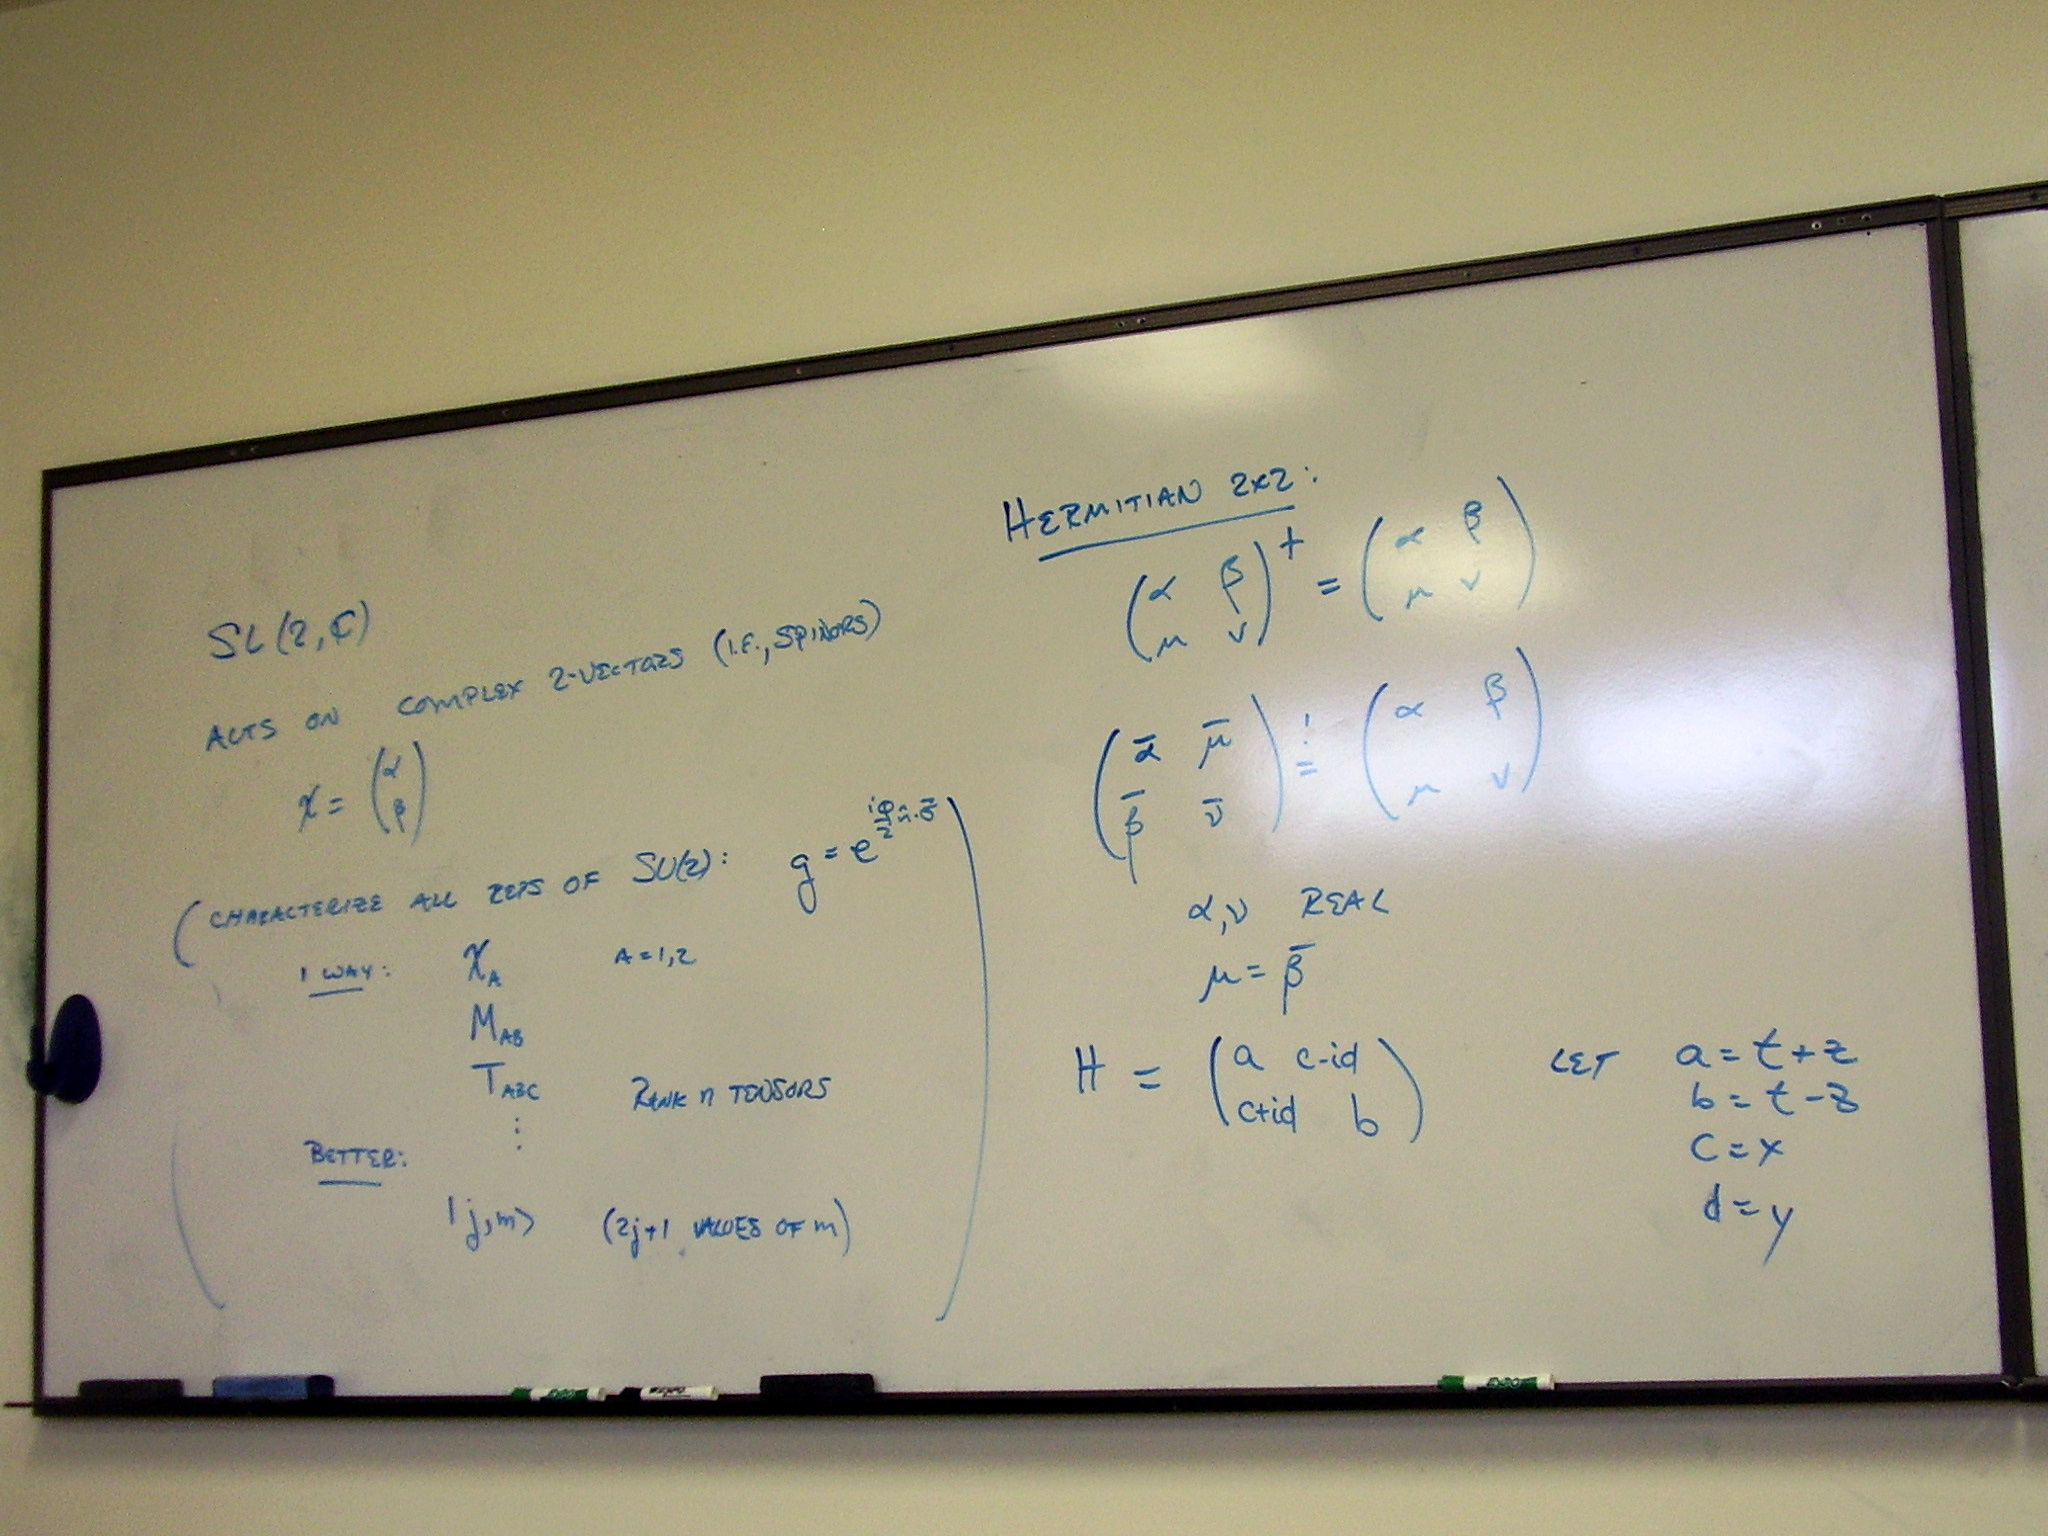 SL(2,ℂ)
ACTS ON COMPLEX 2-VECTORS (I.E., SPINORS)
χ = (α
β)
(CHARACTERIZE ALL REPS OF SU(2): g = e^{iφ/2 n̂·σ̄}
1 WAY: χ_A A=1,2
M_AB
T_ABC RANK n TENSORS
⋮
BETTER:
|j,m> (2j+1 VALUES OF m))
HERMITIAN 2x2:
(α β
μ ν)† = (α β
μ ν)
(ᾱ μ̄
β̄ ν̄) != (α β
μ ν)
α,ν REAL
μ = β̄
H = (a c-id
c+id b)
LET a = t+z
b = t-z
c = x
d = y